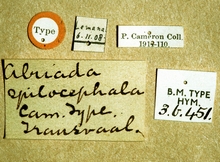 Type
6.11.08.
P. Cameron Coll.
1914-110.
Abriada
epilocephala
Cam. Type.
Transvaal.
B.M. TYPE
HYM.
3.b.451.